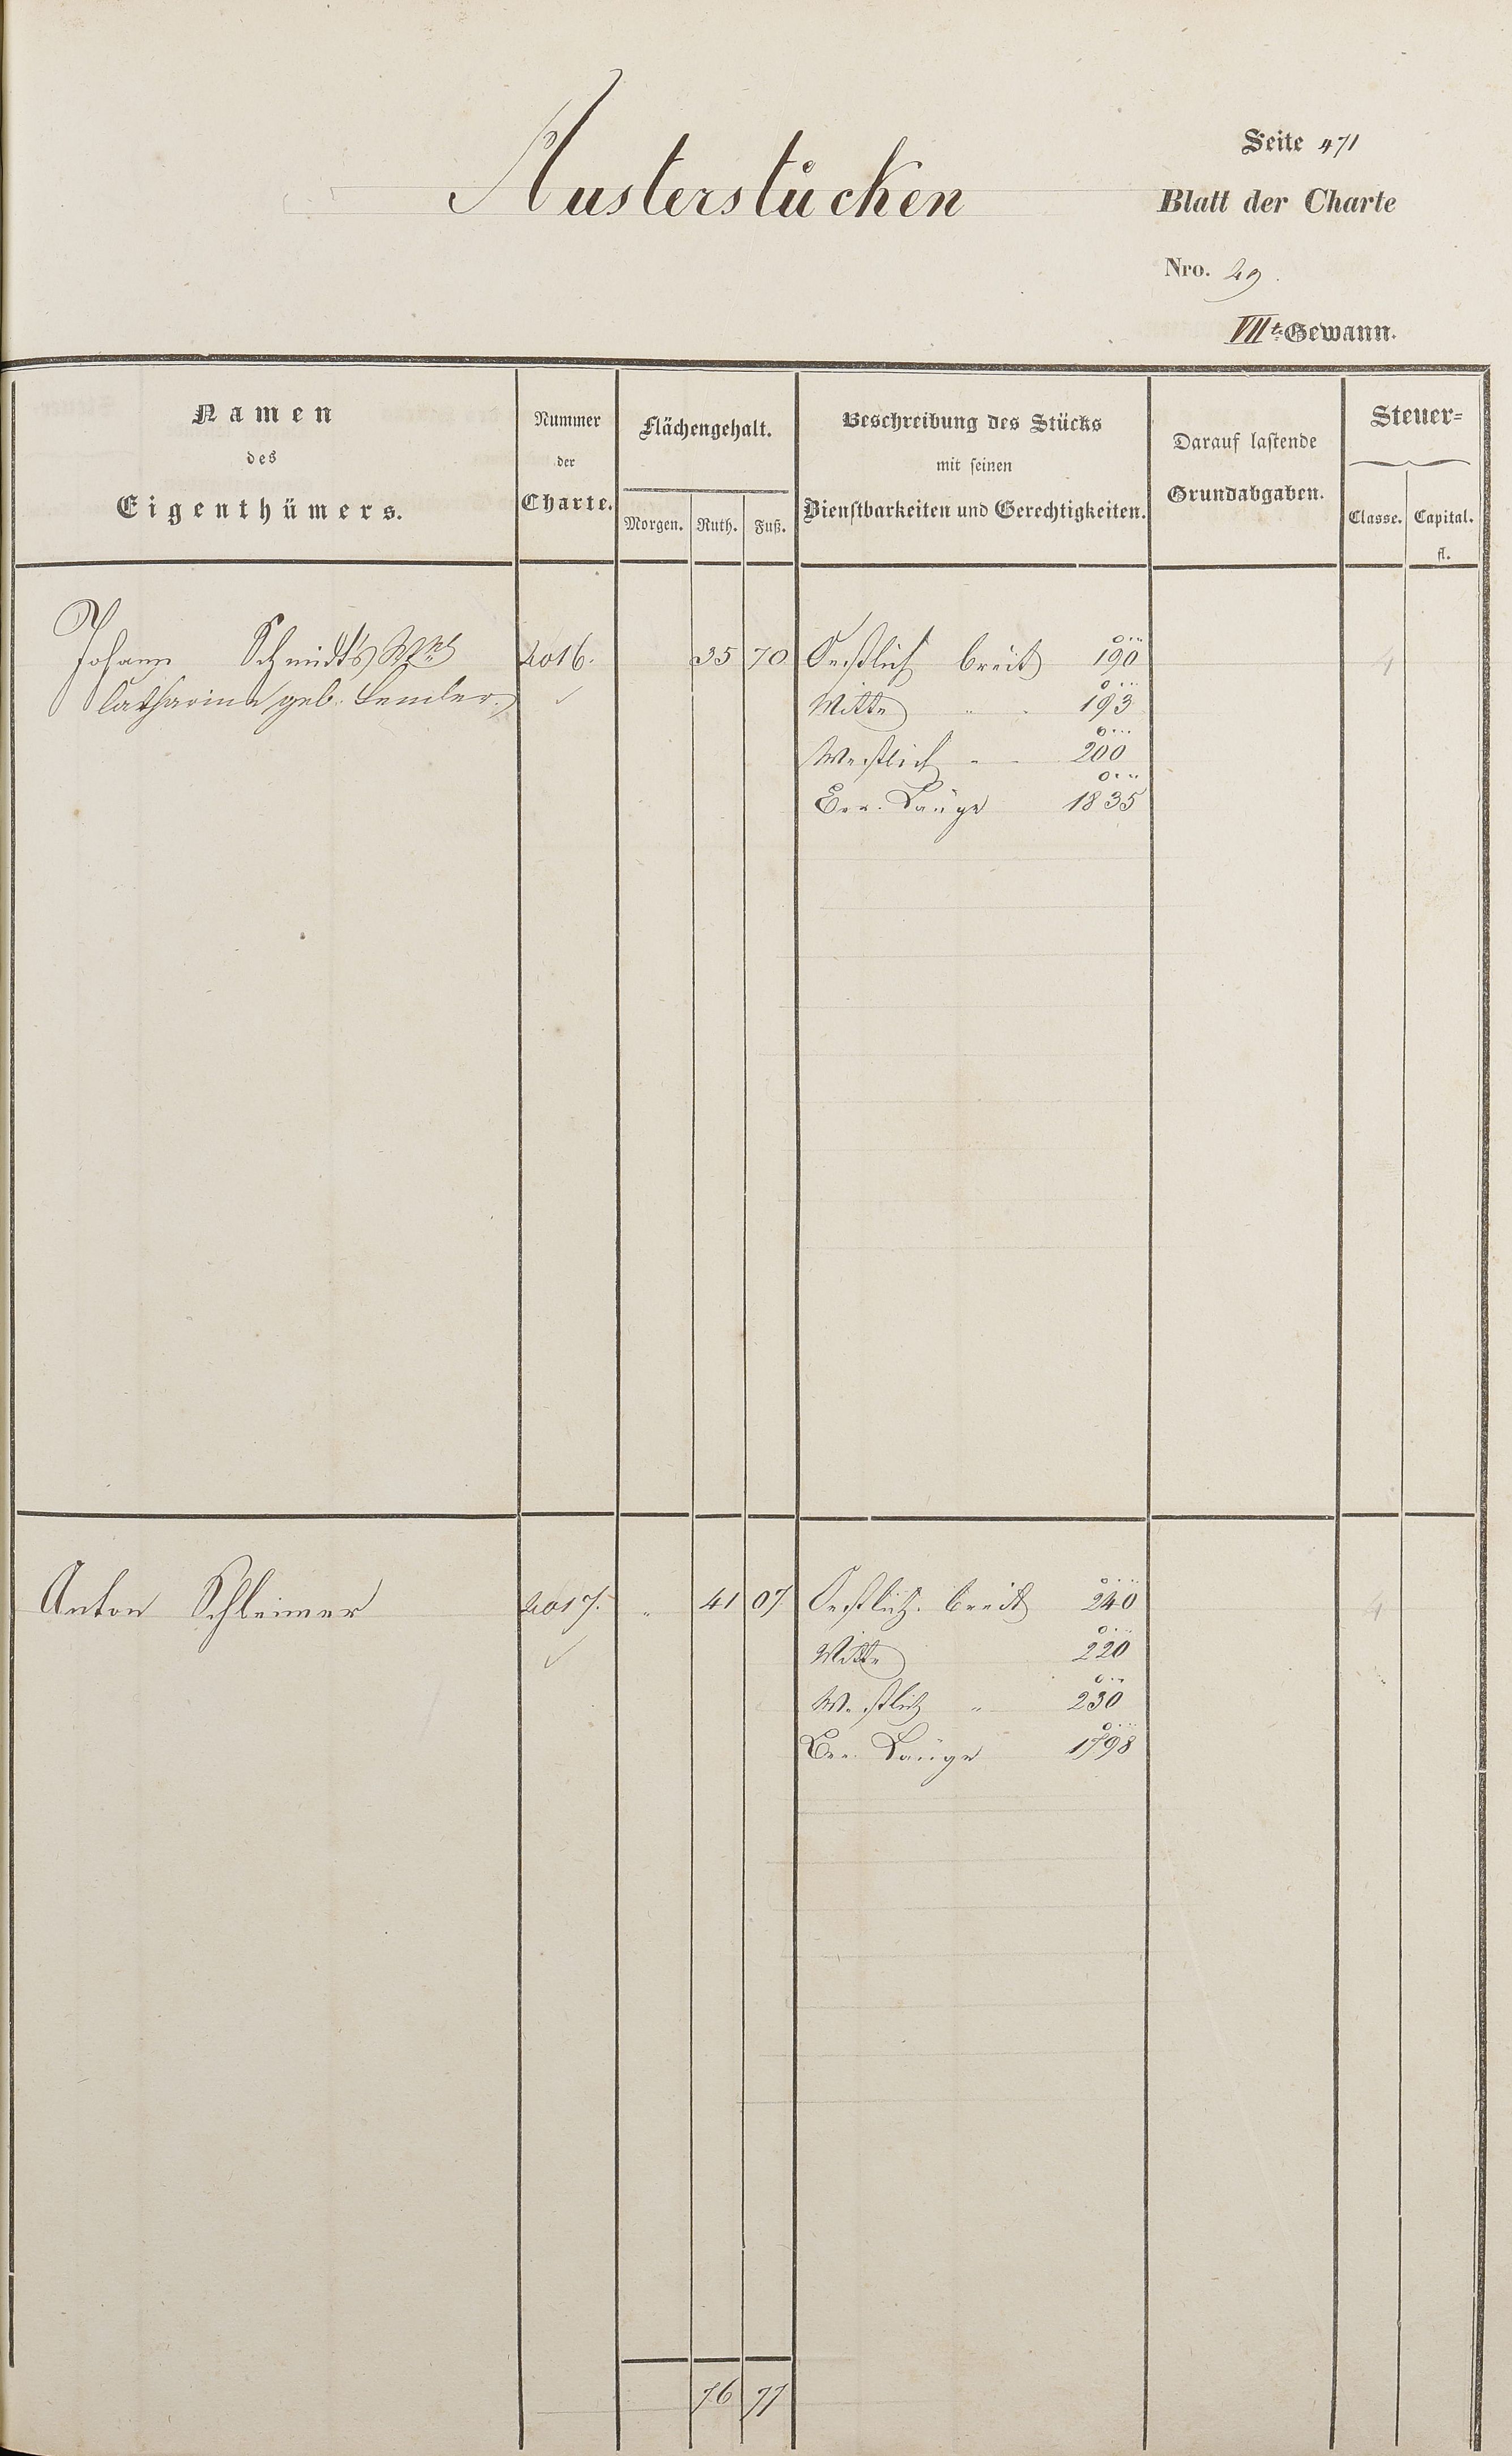 Austerstücken
Seite 471
Blatt der Charte
Nro. 29.
VIIt. Gewann.
Namen
des
Eigenthümers.
Nummer
der
Charte.
Flächengehalt.
Morgen. Ruth. Fuß.
Beschreibung des Stücks
mit seinen
Dienstbarkeiten und Gerechtigkeiten.
Darauf lastende
Grundabgaben.
Steuer=
Classe. Capital.
fl.
Johann Schmidt's 2016. 35 70 Oestlich breit 190 4
Catharina geb. Lemler. Mitte " " 193
Westlich " " 200
Länge 1835
Anton Schleimer 2017. " 41 07 Oestlich breit 240 4
Mitte 220
Westlich " 230
Länge 1798
76 77